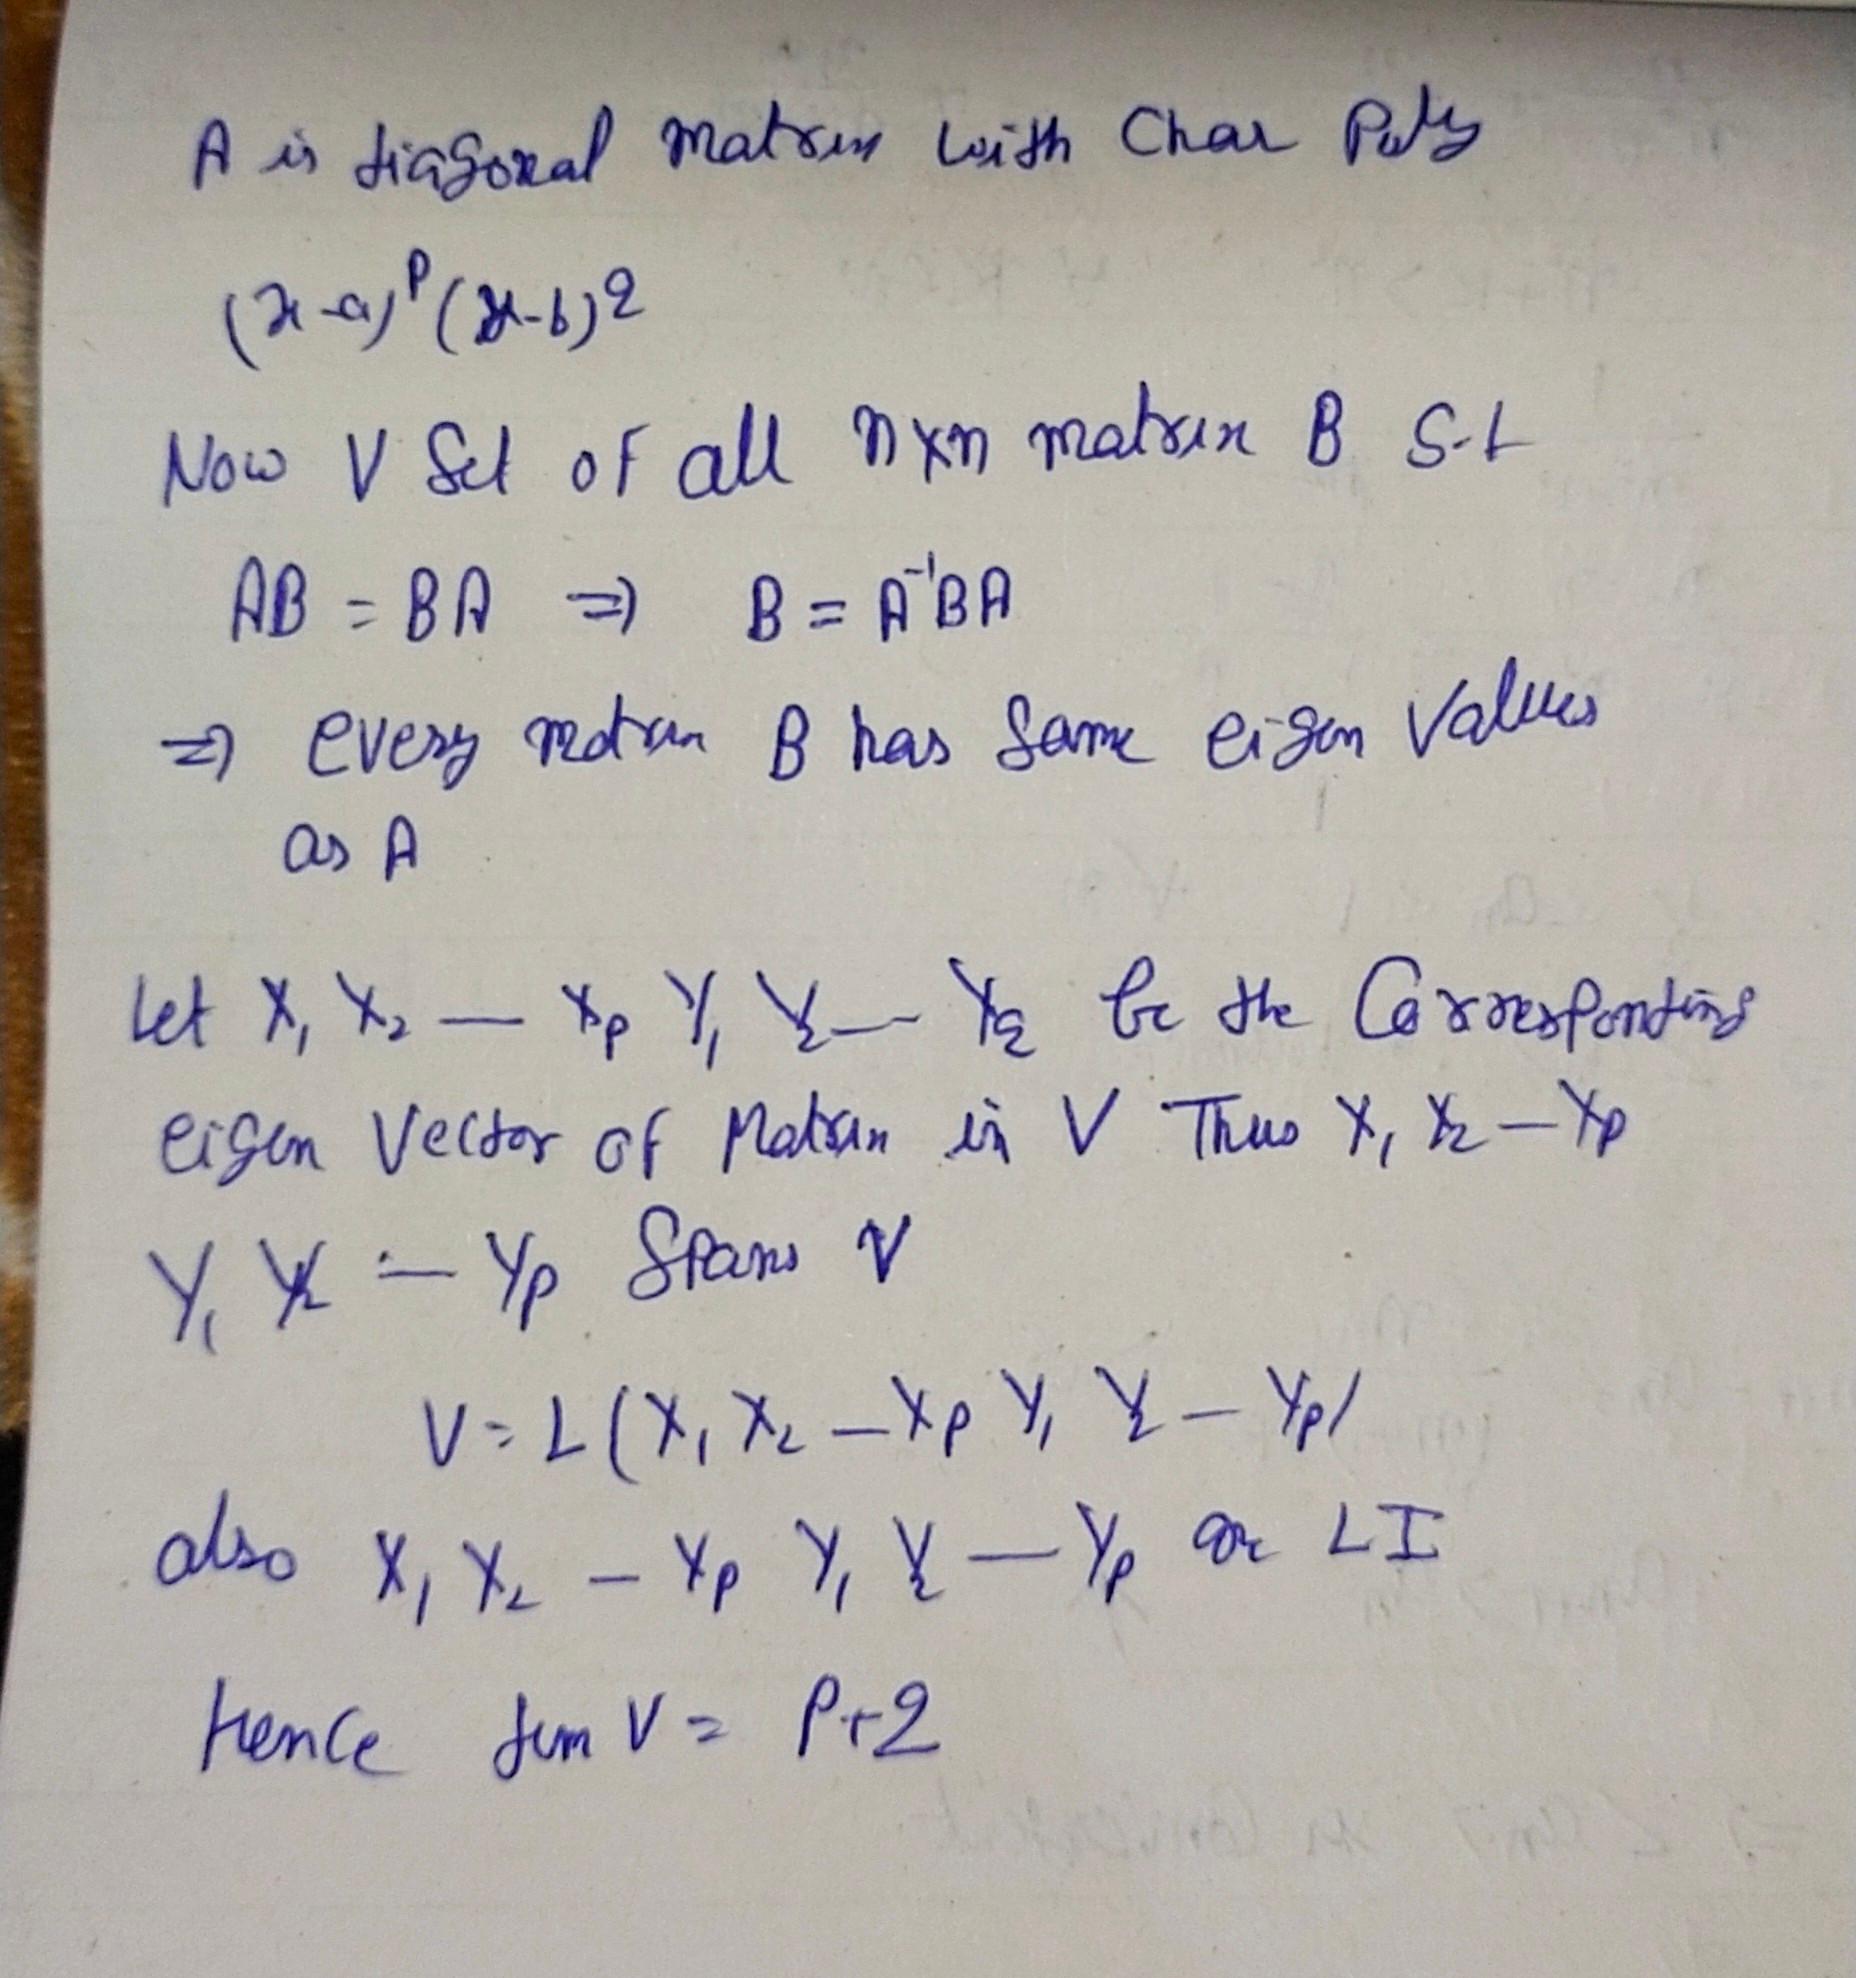 A is diagonal matrix with Char Poly
(x-a)^p (x-b)^q
Now V Set of all n×n matrix B S.t
AB = BA ⇒ B = A^-1 BA
⇒ every matrix B has Same eigen Values
as A
Let X1 X2 — Xp Y1 Y2 — Yq be the Corresponding
eigen Vector of Matrix in V Thus X1 X2 — Xp
Y1 Y2 — Yp Spans V
V = L(X1 X2 — Xp Y1 Y2 — Yp)
also X1 X2 — Xp Y1 Y2 — Yp are LI
Hence dim V = P+q